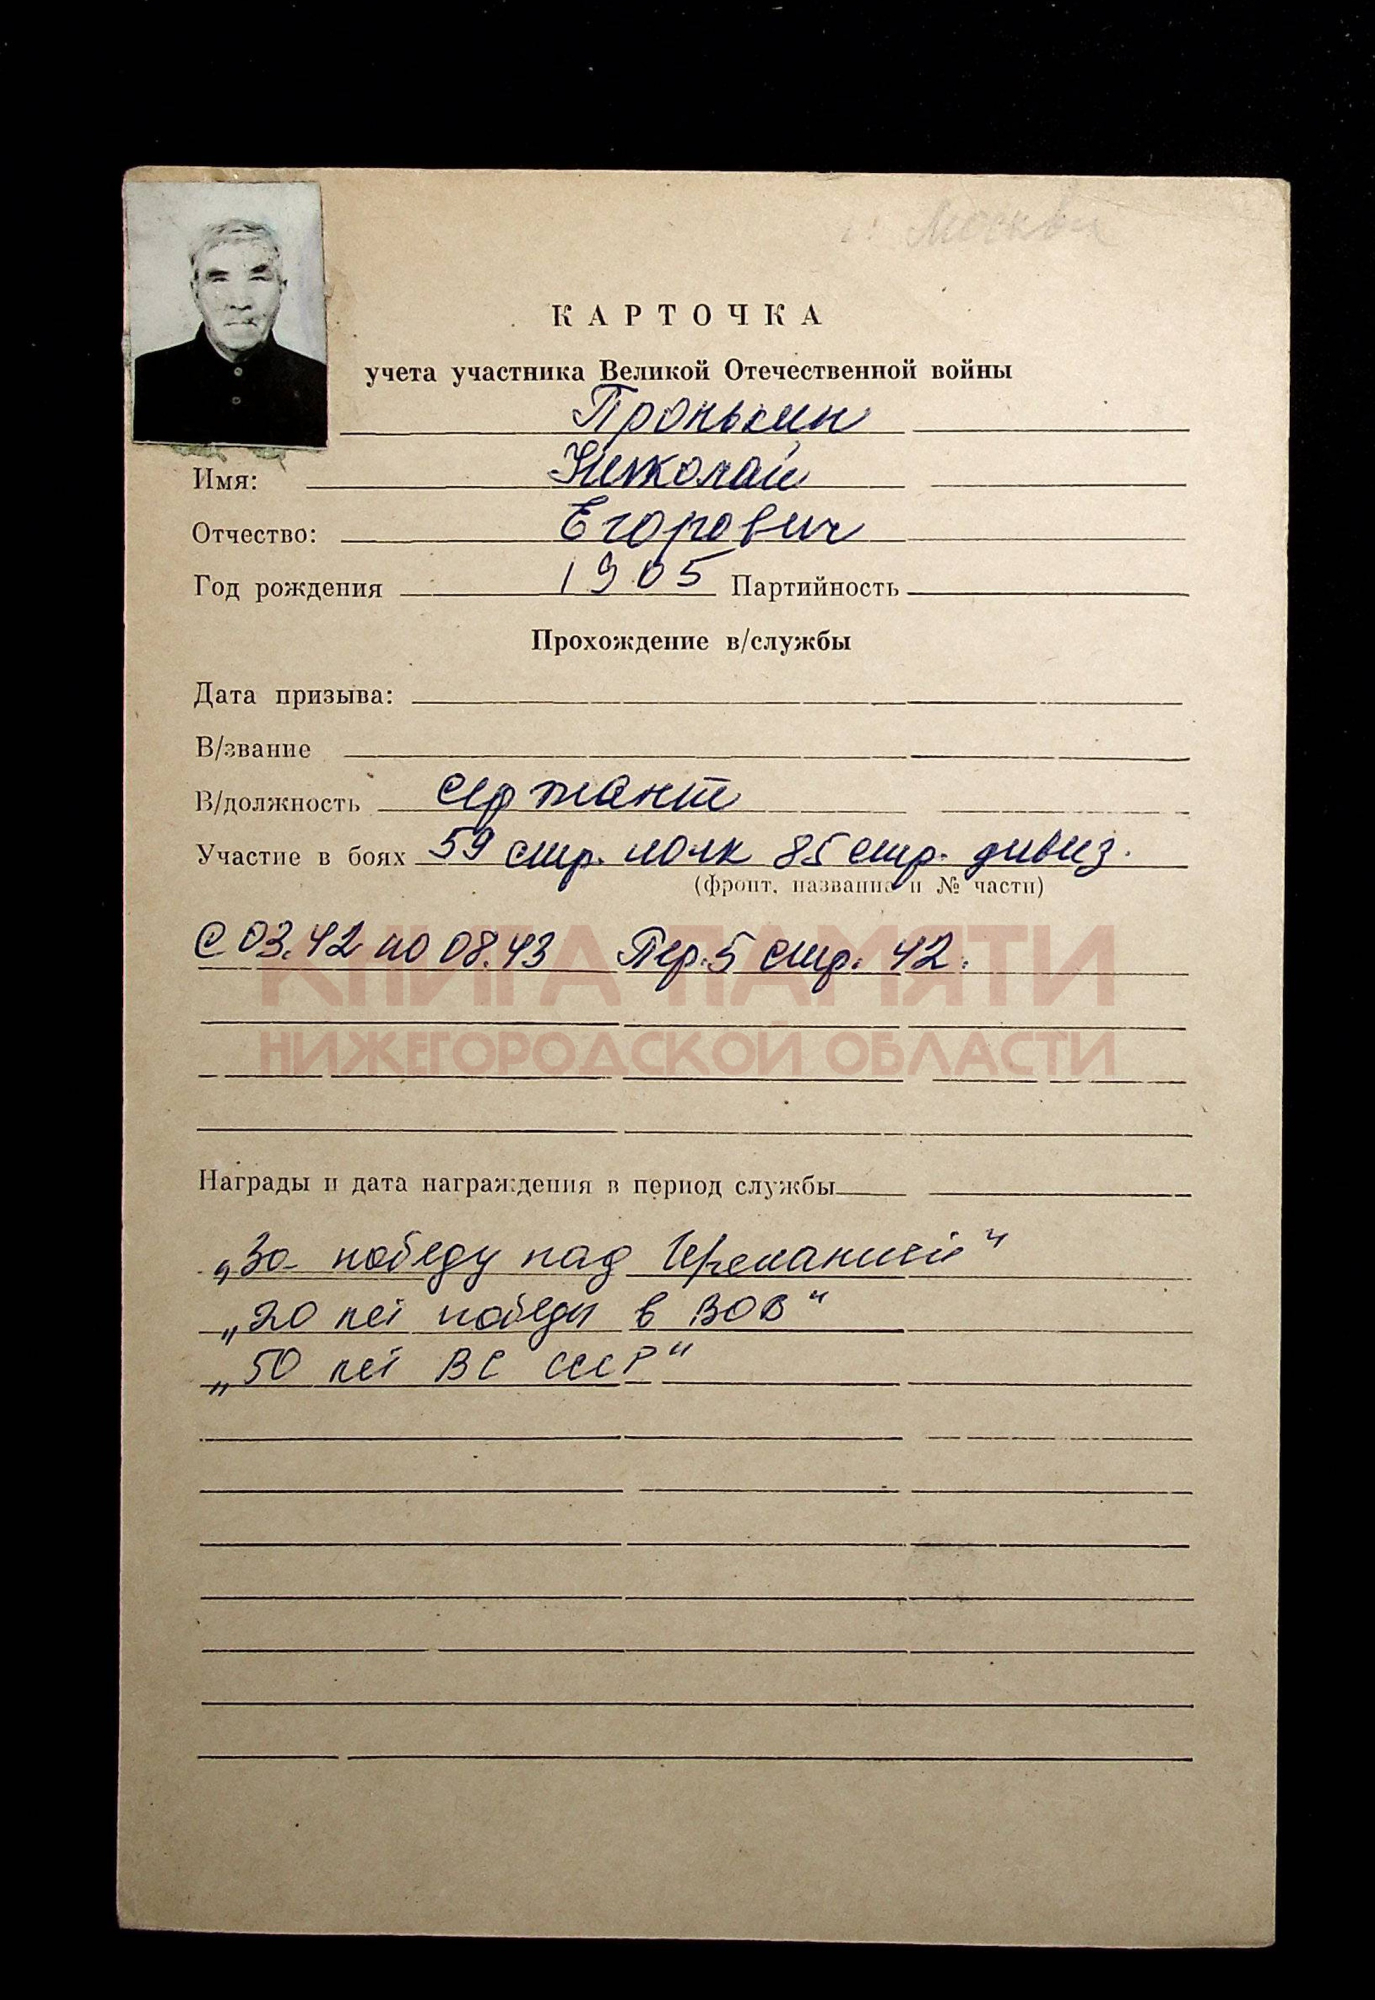 г. Москва
КАРТОЧКА
учета участника Великой Отечественной войны
Пронькин
Имя: Николай
Отчество: Егорович
Год рождения 1905 Партийность
Прохождение в/службы
Дата призыва:
В/звание
В/должность сержант
Участие в боях 59 стр. полк 85 стр. дивиз.
(фронт, название и № части)
с 03.42 по 08.43 Пер. 5 стр. 42.
КНИГА ПАМЯТИ
НИЖЕГОРОДСКОЙ ОБЛАСТИ
Награды и дата награждения в период службы
„За победу над Германией“
„20 лет победы в ВОВ“
„50 лет ВС СССР“